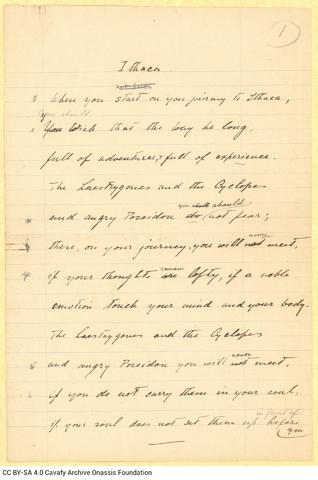 1
Ithaca
When you start on you jorney to Ithaca,
you should
You wish that the way be long,
full of adventures, full of experience.
The Laestrygones and the Cyclopes
you should
and angry Poseidon do not fear;
never
there, on your journey, you will not meet,
remain
if your thoughts are lofty, if a noble
emotion touch your mind and your body.
The Laestrygones and the Cyclopes
never
and angry Poseidon you will not meet,
if you do not carry them in your soul,
in front of
if your soul does not set them up before
you
CC BY-SA 4.0 Cavafy Archive Onassis Foundation